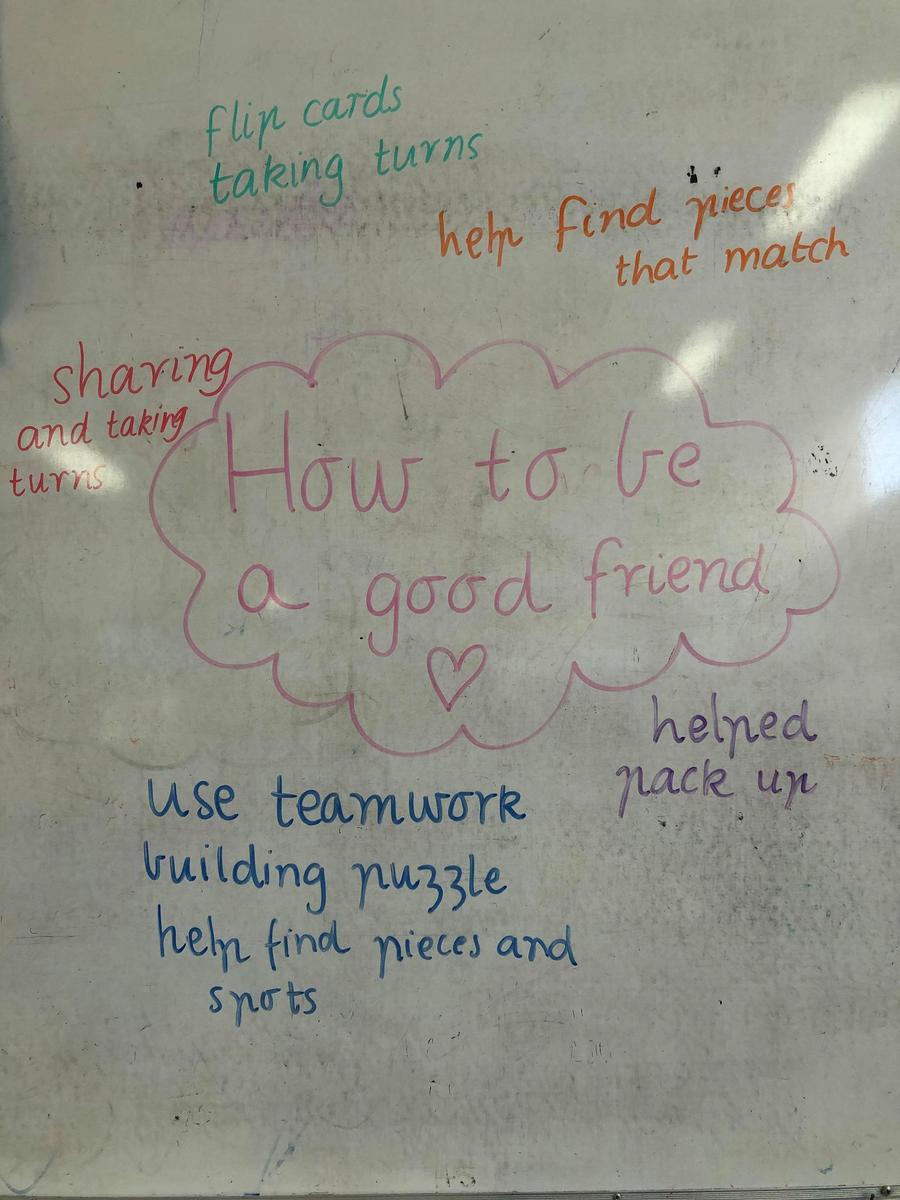 flip cards
taking turns
help find pieces
that match
sharing
and taking
turns
How to be
a good friend
helped
pack up
use teamwork
building puzzle
help find pieces and
spots